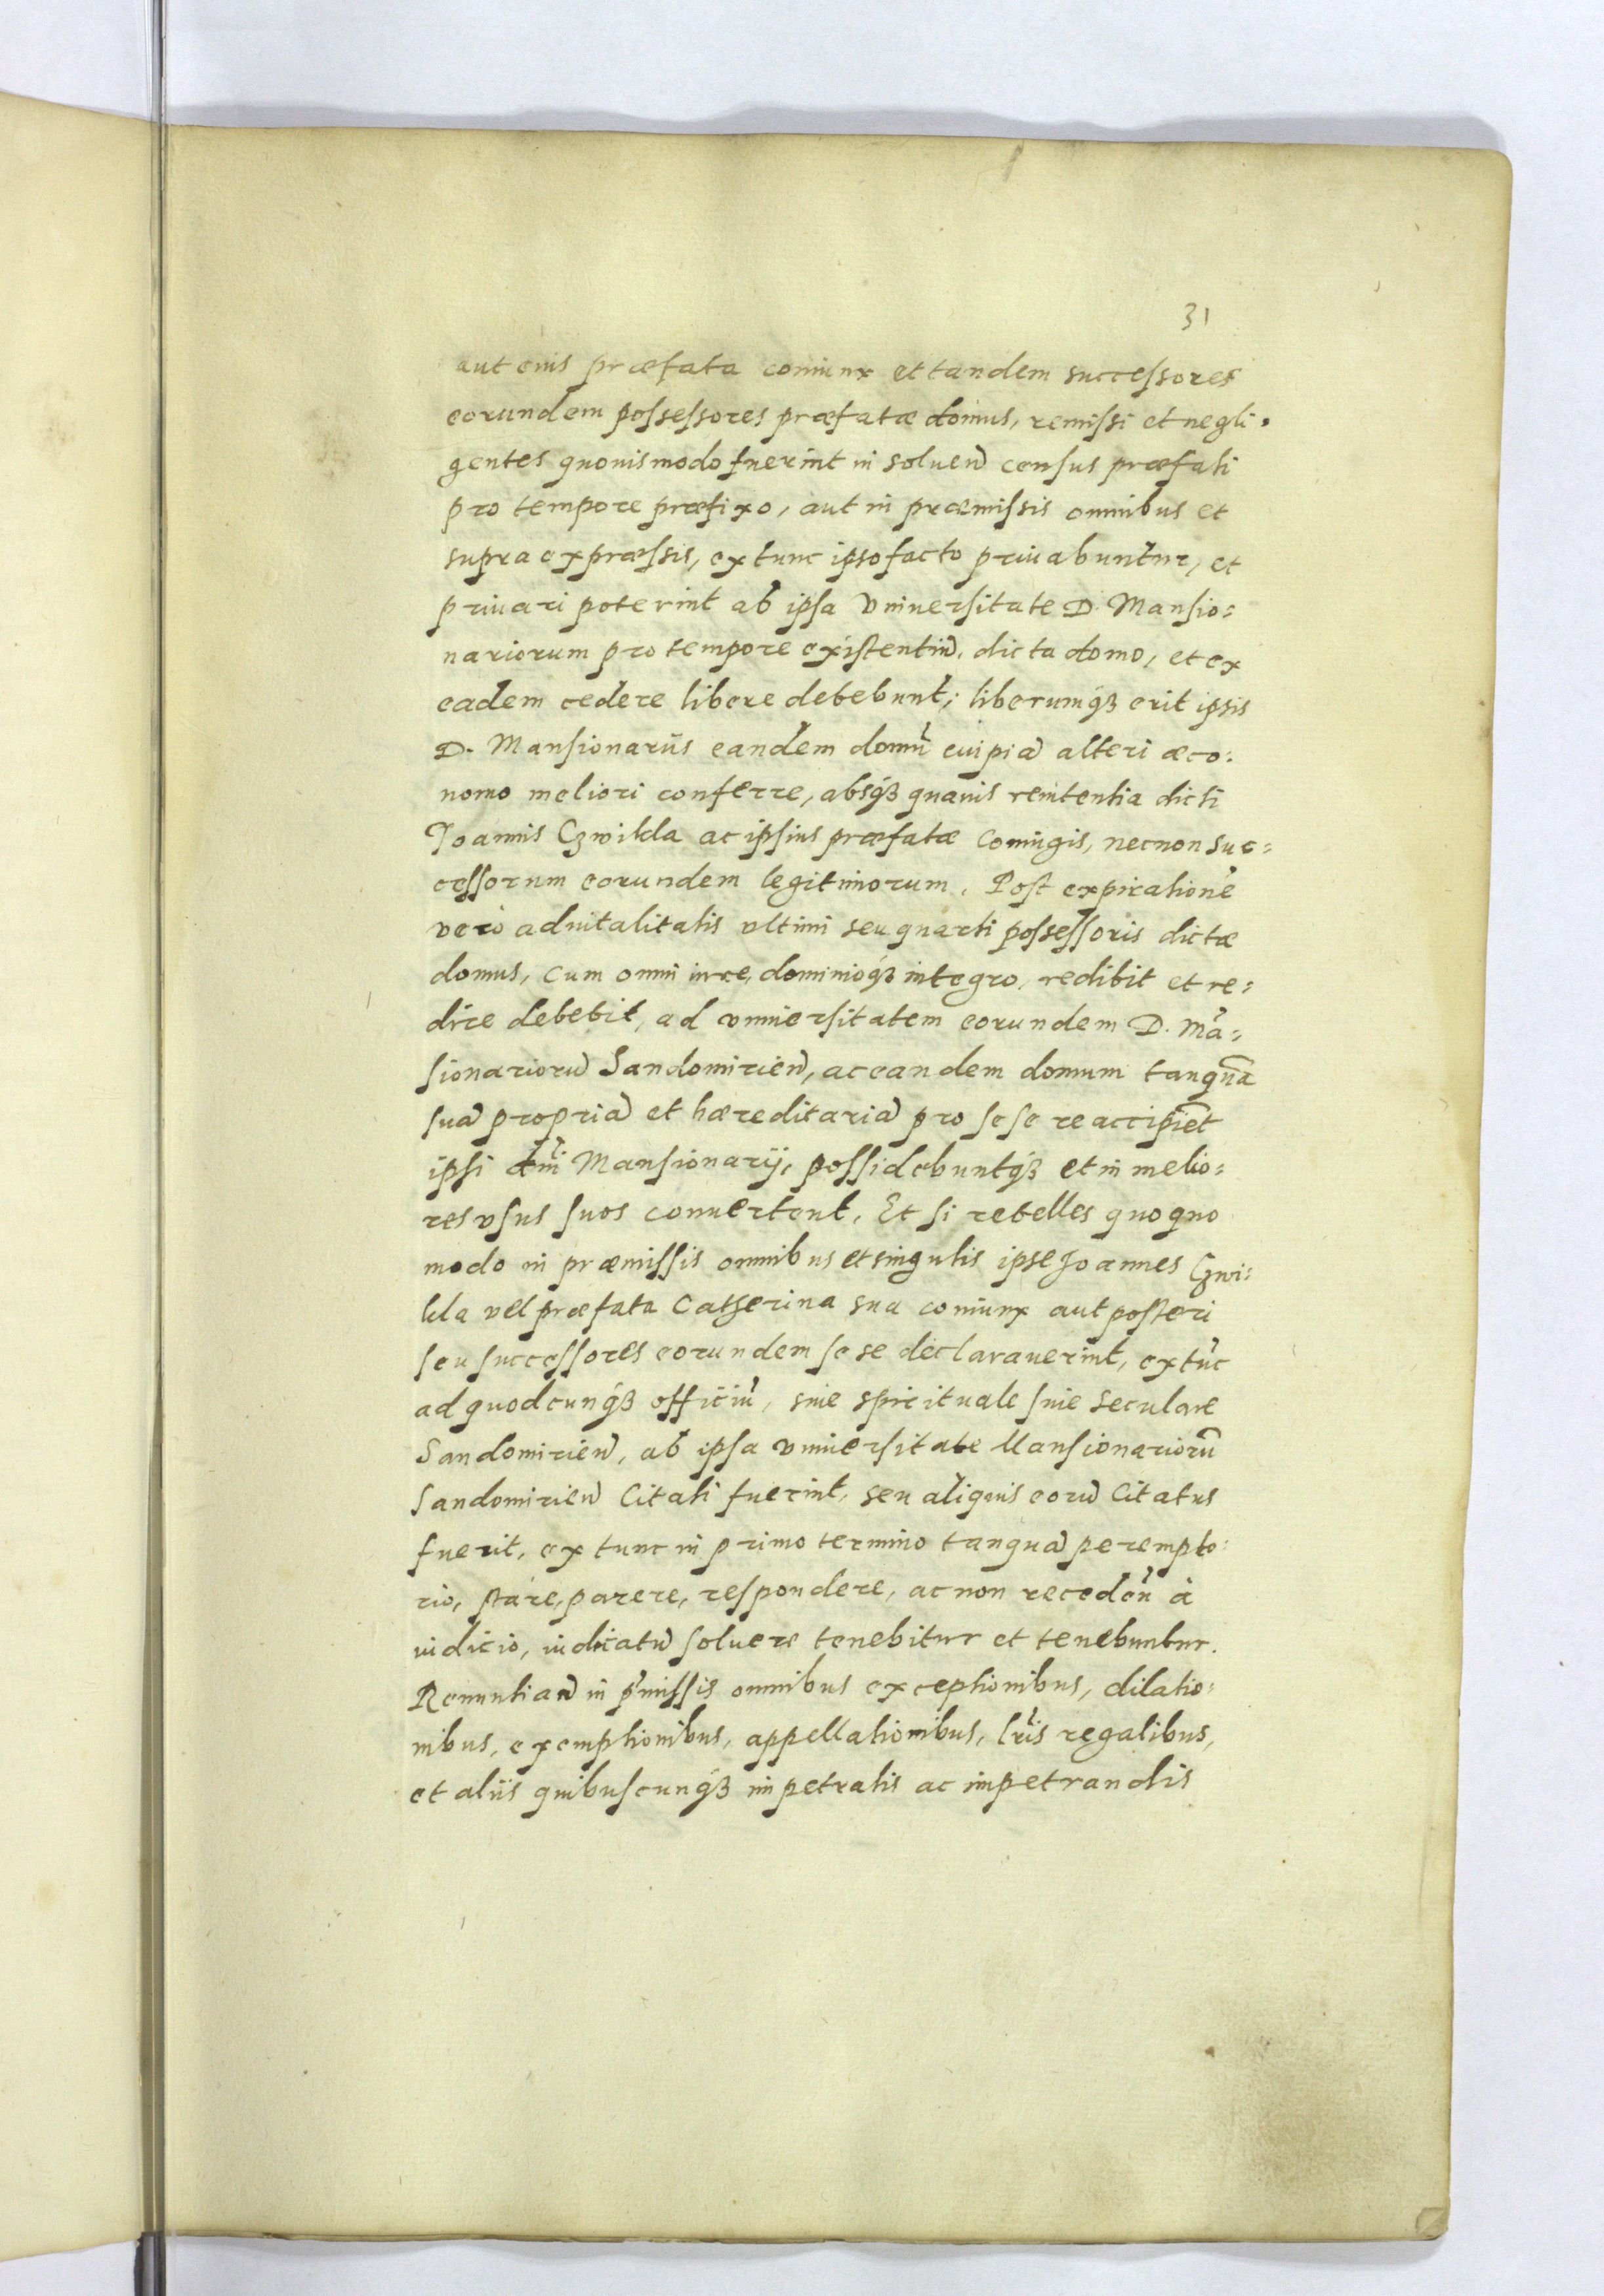 31
aut eius præfata coniunx et tandem successores
eorundem possessores præfatæ domus, remissi et negli-
gentes quouismodo fuerint in soluen̄ census præfati
pro tempore præfixo, aut in præmissis omnibus et
supra expræssis, ex tunc ipso facto priuabuntur, et
priuari poterint ab ipsa Vniuersitate D. Mansio:
nariorum pro tempore existentiū, dicta domo, et ex
eadem cedere libere debebunt; liberumq́ꝫ erit ipsis
D. Mansionariis eandem domū cuipiā alteri æco:
nomo meliori conferre, absq́ꝫ quauis renitentia dicti
Joannis Czwikla ac ipsius præfatæ Coniugis, necnon suc:
cessorum eorundem legitimorum. Post expirationē
verò aduitalitatis vltimi seu quarti possessoris dictæ
domus, cum omni iure, dominioq́ꝫ integro, redibit et re:
dire debebit, ad vniuersitatem eorundem D. Mā:
sionariorū Sandomirien̄, ac eandem domum tanquā
suā propriā et hæreditariā pro sese reaccipiēt
ipsi dn̄i Mansionarij, possidebuntq́ꝫ et in melio:
res vsus suos conuertent. Et si rebelles quoquo
modo in præmissis omnibus et singulis ipse Joannes Czwi:
kla vel præfata Catherina sua coniunx aut posteri
seu successores eorundem sese declarauerint, ex tūc
ad quodcunq́ꝫ officiū, siue spirituale siue seculare
Sandomirien̄, ab ipsa vniuersitate Mansionariorū
Sandomirien̄ Citati fuerint, seu aliquis eorū Citatus
fuerit, ex tunc in primo termino tanquā perempto:
rio, stare, parere, respondere, ac non receden̄ à
iudicio, iudicatū soluere tenebitur et tenebuntur.
Renuntian̄ in p̄missis omnibus exceptionibus, dilatio:
nibus, exemptionibus, appellationibus, lr̄is regalibus,
et aliis quibuscunq́ꝫ impetratis ac impetrandis